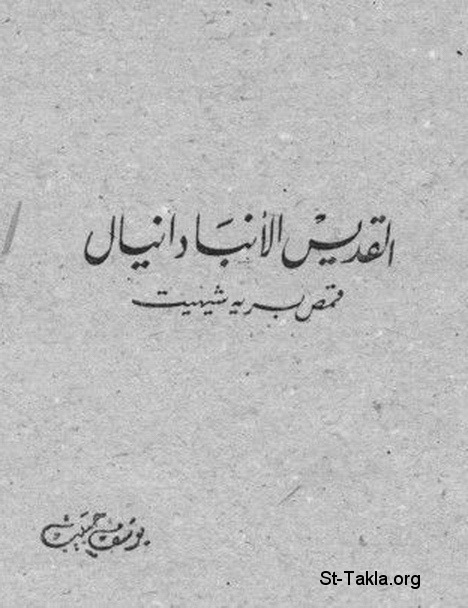 القديس الأنبا دانيال
قمص برية شيهيت
يوسف حبيب
St-Takla.org